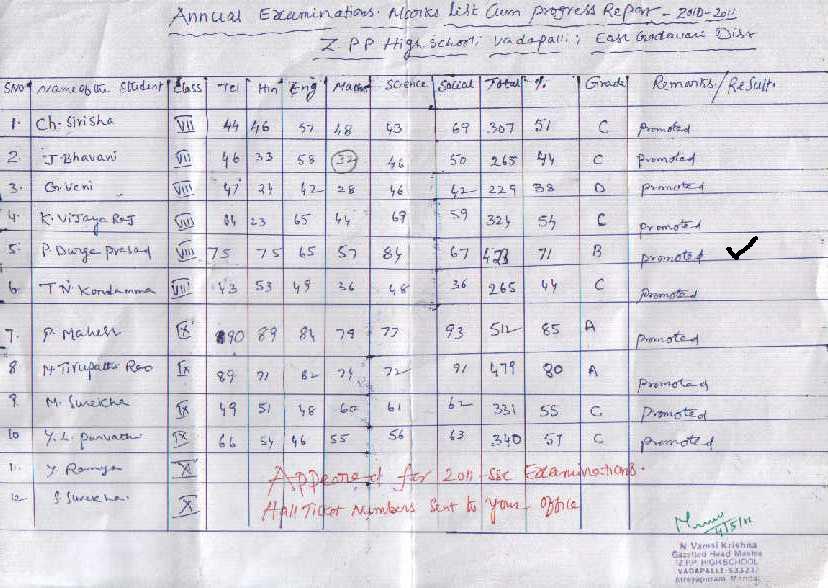 Annual Examinations. Marks List Cum Progress Report - 2010-2011
Z PP High School, Vadapalli, East Godavari Dist
SNO Name of the Student Class Tel Hin Eng Maths Science Social Total % Grade Remarks/Result.
1. Ch. Sirisha VII 44 46 57 48 43 69 307 51 C promoted
2 J. Bhavani VII 46 33 58 32 46 50 265 44 C promoted
3. G. Veni VIII 47 24 42 28 46 42 229 38 D promoted
4. K. Vijaya Raj VIII 64 23 65 44 69 59 324 54 C promoted
5. P. Durga Prasad VIII 75 75 65 57 84 67 423 71 B promoted ✓
6. T N Kondamma VIII 43 53 49 36 48 36 265 44 C promoted
7. P. Mahesh IX 90 89 84 79 77 93 512 85 A Promoted
8 N Tirupathi Rao IX 89 71 82 74 72 91 479 80 A Promoted
9 M. Surekha IX 49 51 48 60 61 62 331 55 C. Promoted
10 Y. L. Parvathi IX 66 54 46 55 56 63 340 57 C promoted
11 Y Ramya X Appeared for 2011-SSC Examinations.
12 S Surekha X Hall Ticket Numbers Sent to Your Office
4/5/11
N Vamsi Krishna
Gazetted Head Master
Z PP HIGH SCHOOL
VADAPALLE-533237
Atreyapuram Mandal